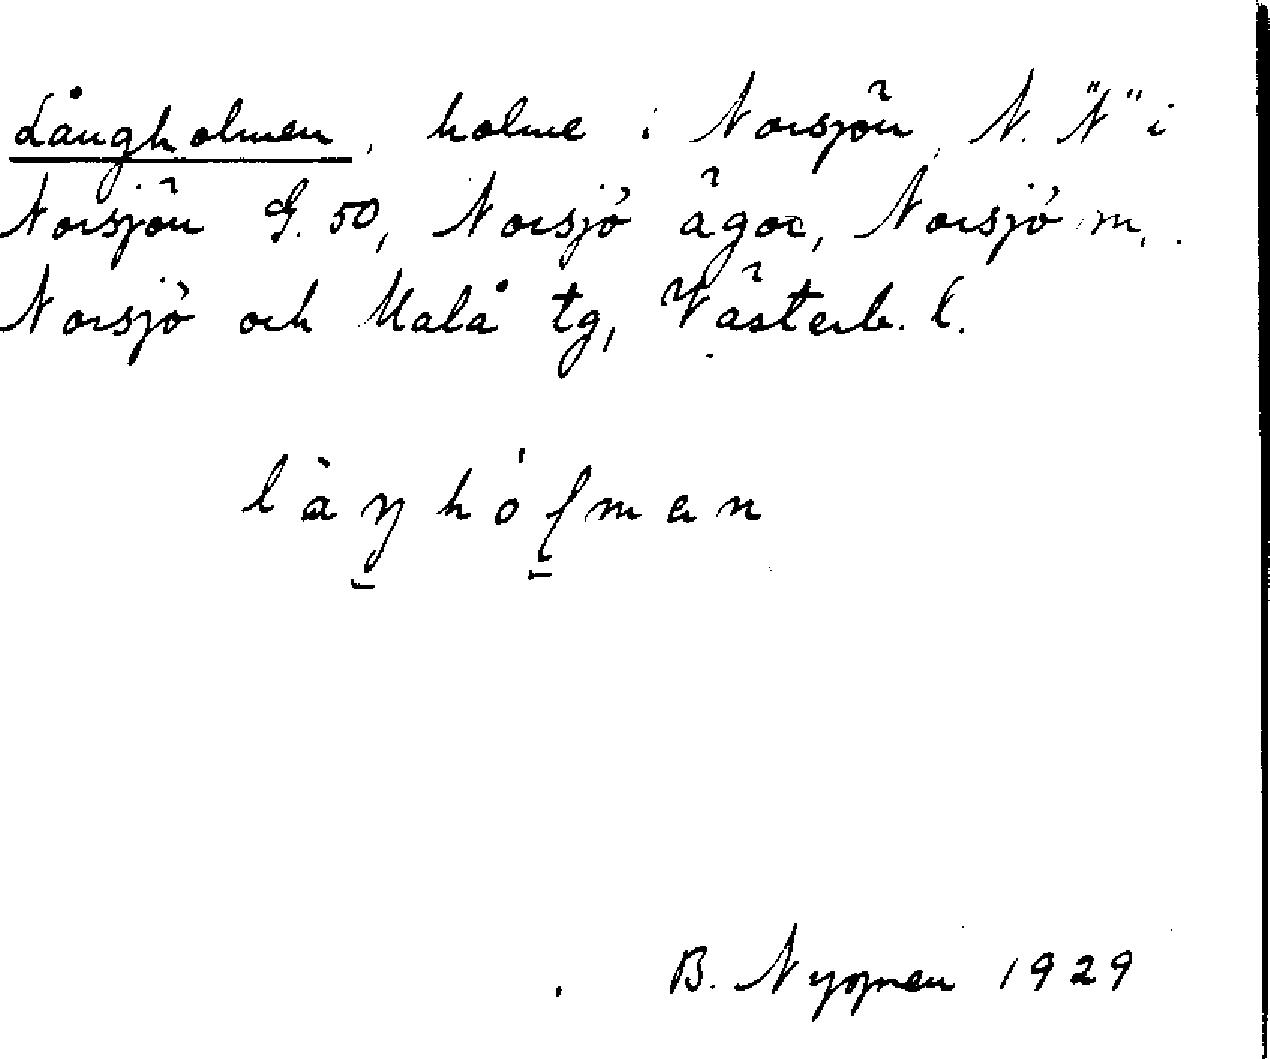 Långholmen, holme i Norsjön N. "N" i
Norsjön G. 50, Norsjö ägor, Norsjö m,.
Norsjö och Malå tg, Västerb. l.
làŋhólmen
B. Nyman 1929